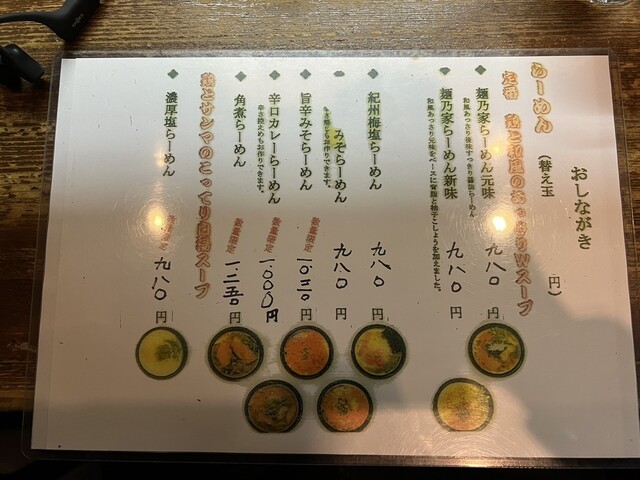 おしながき
らーめん
(替え玉 円)
定番 鶏と和風のあっさりWスープ
◆ 麺乃家らーめん元味 九八〇円
和風あっさり後味すっきり醤油らーめん
◆ 麺乃家らーめん新味 九八〇円
和風あっさり元味をベースに背脂と柚子こしょうを加えました。
◆ 紀州梅塩らーめん 九八〇円
◆ みそらーめん 九八〇円
◆ 旨辛みそらーめん 数量限定 一、〇三〇円
◆ 辛口カレーらーめん 数量限定 一、〇〇〇円
辛さ控えめもお作りできます。
◆ 角煮らーめん 数量限定 一、二五〇円
鶏とサンマのこってり白湯スープ
◆ 濃厚塩らーめん 数量限定 九八〇円